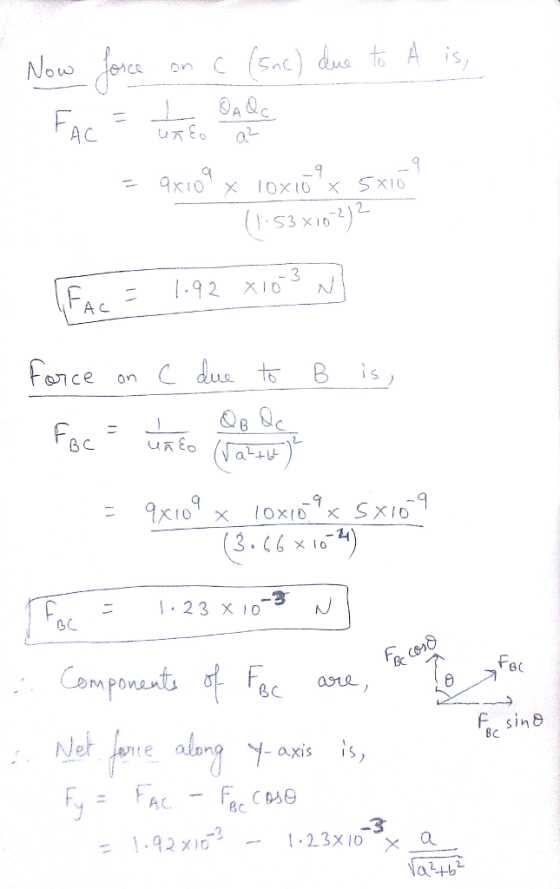 Now force on C (5nc) due to A is,
F_AC = 1/4πε₀ Q_A Q_C / a²
= 9×10⁹ × 10×10⁻⁹ × 5×10⁻⁹ / (1.53×10⁻²)²
F_AC = 1.92 ×10⁻³ N
Force on C due to B is,
F_BC = 1/4πε₀ Q_B Q_C / (√a²+b²)²
= 9×10⁹ × 10×10⁻⁹ × 5×10⁻⁹ / (3.66 × 10⁻⁴)
F_BC = 1.23 × 10⁻³ N
F_BC cosθ
θ F_BC
∴ Components of F_BC are,
F_BC sinθ
∴ Net force along Y-axis is,
F_y = F_AC − F_BC cosθ
= 1.92×10⁻³ − 1.23×10⁻³ × a / √a²+b²